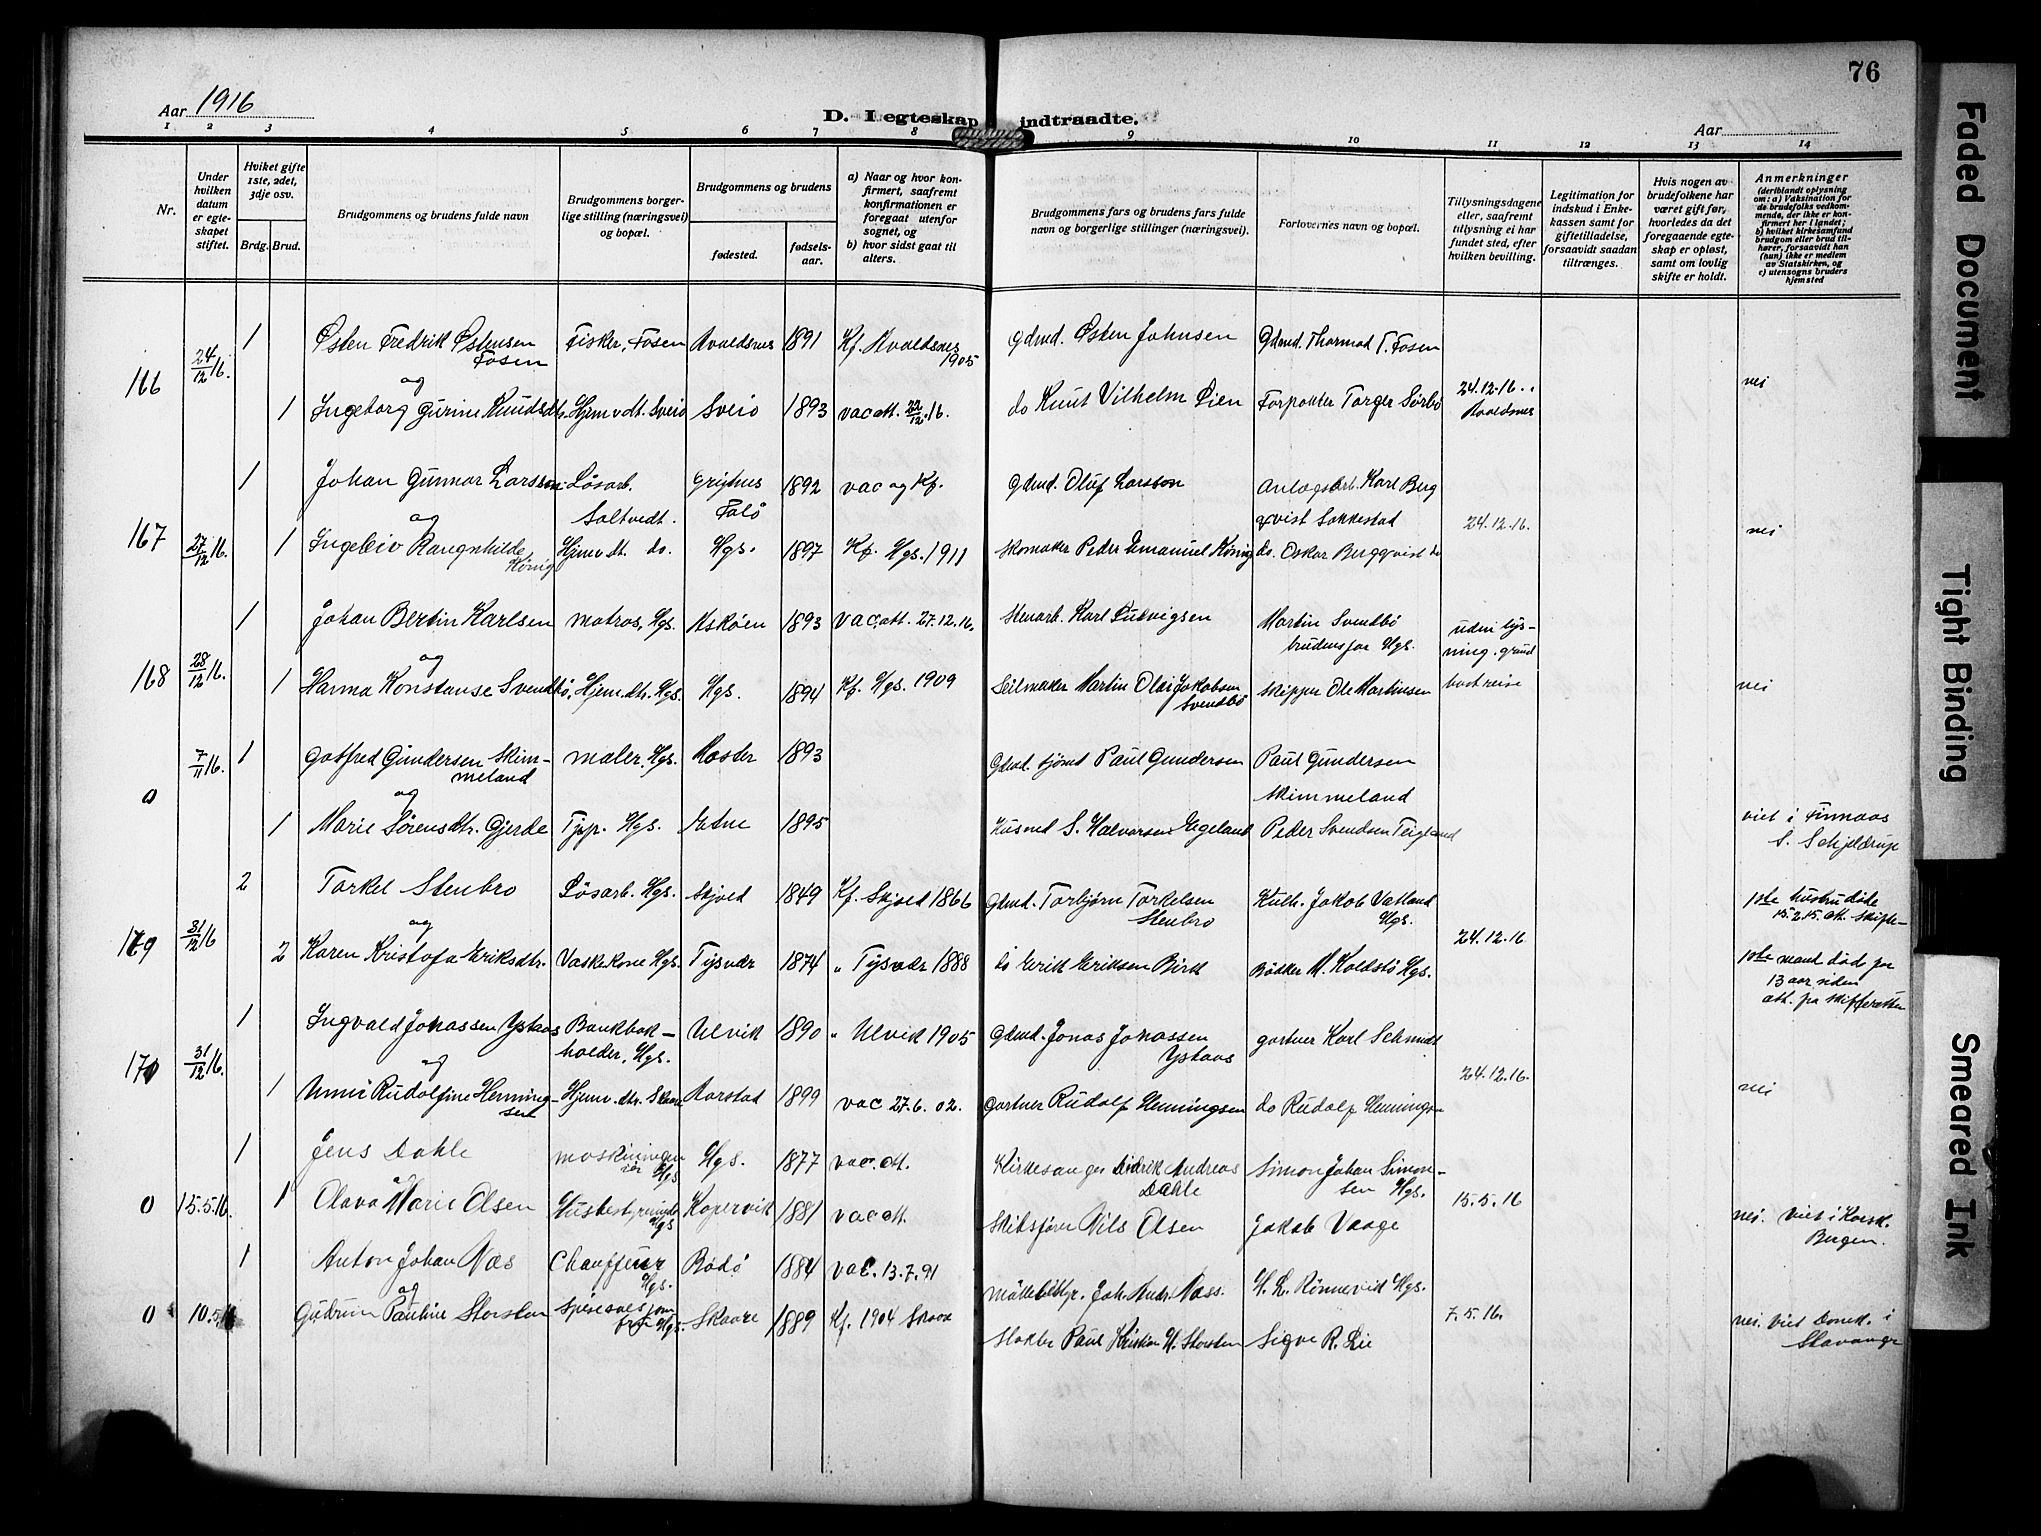 76
Aar 1916
D. Egteskap indtraadte.
Aar
1 2 3 4 5 6 7 8 9 10 11 12 13 14
Nr.
Under hvilken datum er egteskapet stiftet.
Hviket gifte 1ste, 2det, 3dje osv.
Brdg. Brud.
Brudgommens og brudens fulde navn
Brudgommens borgerlige stilling (næringsvei) og bopæl.
Brudgommens og brudens
fødested.
fødselsaar.
a) Naar og hvor konfirmert, saafremt konfirmationen er foregaat utenfor sognet, og
b) hvor sidst gaat til alters.
Brudgommens fars og brudens fars fulde navn og borgerlige stillinger (næringsvei).
Forlovernes navn og bopæl.
Tillysningsdagene eller, saafremt tillysning ei har fundet sted, efter hvilken bevilling.
Legitimation for indskud i Enkekassen samt for giftetilladelse, forsaavidt saadan tiltrænges.
Hvis nogen av brudefolkene har været gift før, hvorledes da det foregaaende egteskap er opløst, samt om lovlig skifte er holdt.
Anmerkninger (deriblandt oplysning om: a) Vaksination for de brudefolks vedkommende, der ikke er konfirmert her i landet; b) hvilket kirkesamfund brudgom eller brud tilhører, forsaavidt han (hun) ikke er medlem av Statskirken, og c) utensogns bruders hjemsted
166 24/12 16. 1 Østen Fredrik Østensen Fosen Fisker, Fosen Avaldsnes 1891 Kf. Avaldsnes 1905 Gdmd. Østen Johnsen Gdmd. Thormod T. Fosen
og
1 Ingeborg Gurine Knudsdtr. Hjemv. dt. Sveio Sveio 1893 vac att. 22/12 16. do Knut Vilhelm Lien Forpakter Torger Sørbø 24.12.16. Avaldsnes nei
1 Johan Gunnar Larsson Løsarb. Saltvedt. 1892 vac og Kf. Gdmd. Oluf Larsson Anlagsarb. Karl Bergqvist Sakkestad
og
167 27/12 16. 1 Ingeleiv Rangnhilde König Hjemv. dt. do. Hgs. 1897 Kf. Hgs. 1911 Skomaker Peder Emanuel König do. Oskar Bergqvist do 24.12.16. nei
1 Johan Bertin Karlsen matros, Hgs. Askøen 1893 vac. att. 27.12.16. Stenarb. Karl Ludvigsen Martin Svendbø brudens far Hgs.
og
168 28/12 16. 1 Hanna Konstanse Svendbø, Hjem. dtr. Hgs. Hgs. 1894 Kf. Hgs. 1909 Seilmaker Martin Olai Jakobsen Svendbø Skipper Ole Martinsen uden lysning. grund bortreise nei
0 7/11 16. 1 Gotfred Gundersen Skimmeland maler. Hgs. Moster 1893 Gdmd. Paul Gundersen Paul Gundersen Skimmeland
og
1 Marie Sørensdtr. Gjerde Tjpp. Hgs. Etne 1895 Husmd S. Halvorsen Egeland Peder Svendsen Teigland viet i Finnaas S. Schjelderup
2 Torkel Stenbro Løsarb. Hgs. Skjold 1849 Kf. Skjold 1866 Gdmd. Torbjørn Torkelsen Stenbro Jakob Vatland Hgs. 1ste hustru døde 15.2.15. att. skifte-
og
169 31/12 16 2 Karen Kristofa Eriksdtr. Vaskekone Hgs. Tysvær 1874 " Tysvær 1888 do Erik Eriksen Birk Bødker M. Koldstø Hgs. 24.12.16 1ste mand død for 13 aar siden att. fra skifteretten
1 Ingvald Jonassen Ystaas Bankbokholder, Hgs. Ulvik 1890 " Ulvik 1905 Gdmd. Jonas Jonassen Ystaas gartner Karl Schmidt
og
170 31/12 16. 1 Unni Rudolfine Henningsen Hjemv. dtr. Skaare Aarstad 1899 vac 27.6.02. gartner Rudolf Henningsen do Rudolf Henningsen 24.12.16. nei
1 Jens Dahle maskiningeniør Hgs Hgs. 1877 vac. att. Kirkesanger Didrik Andreas Dahle Simon Johan Simonsen Hgs.
0 15.5.16. 1 Olava Marie Olsen Husbestyrerinde Hgs Kopervik 1881 vac att. Skibsfører Nils Olsen Jakob Vaage 15.5.16 nei. viet i Korsk. Bergen.
1 Anton Johan Næs Chauffeur Hgs. Rødø 1884 vac. 13.7.91 møllebestyr. Joh. Andr. Næss. H. L. Rønnevik Hgs.
og
0 10.5.16 Gudrun Pauline Storsten spisevogns jomfru Hgs. Skaare 1889 Kf. 1904 Skaare Slakter Paul Kristian H. Storsten Sigve R. Lie 7.5.16. nei. viet Domk. i Stavanger
Faded Document
Tight Binding
Smeared Ink